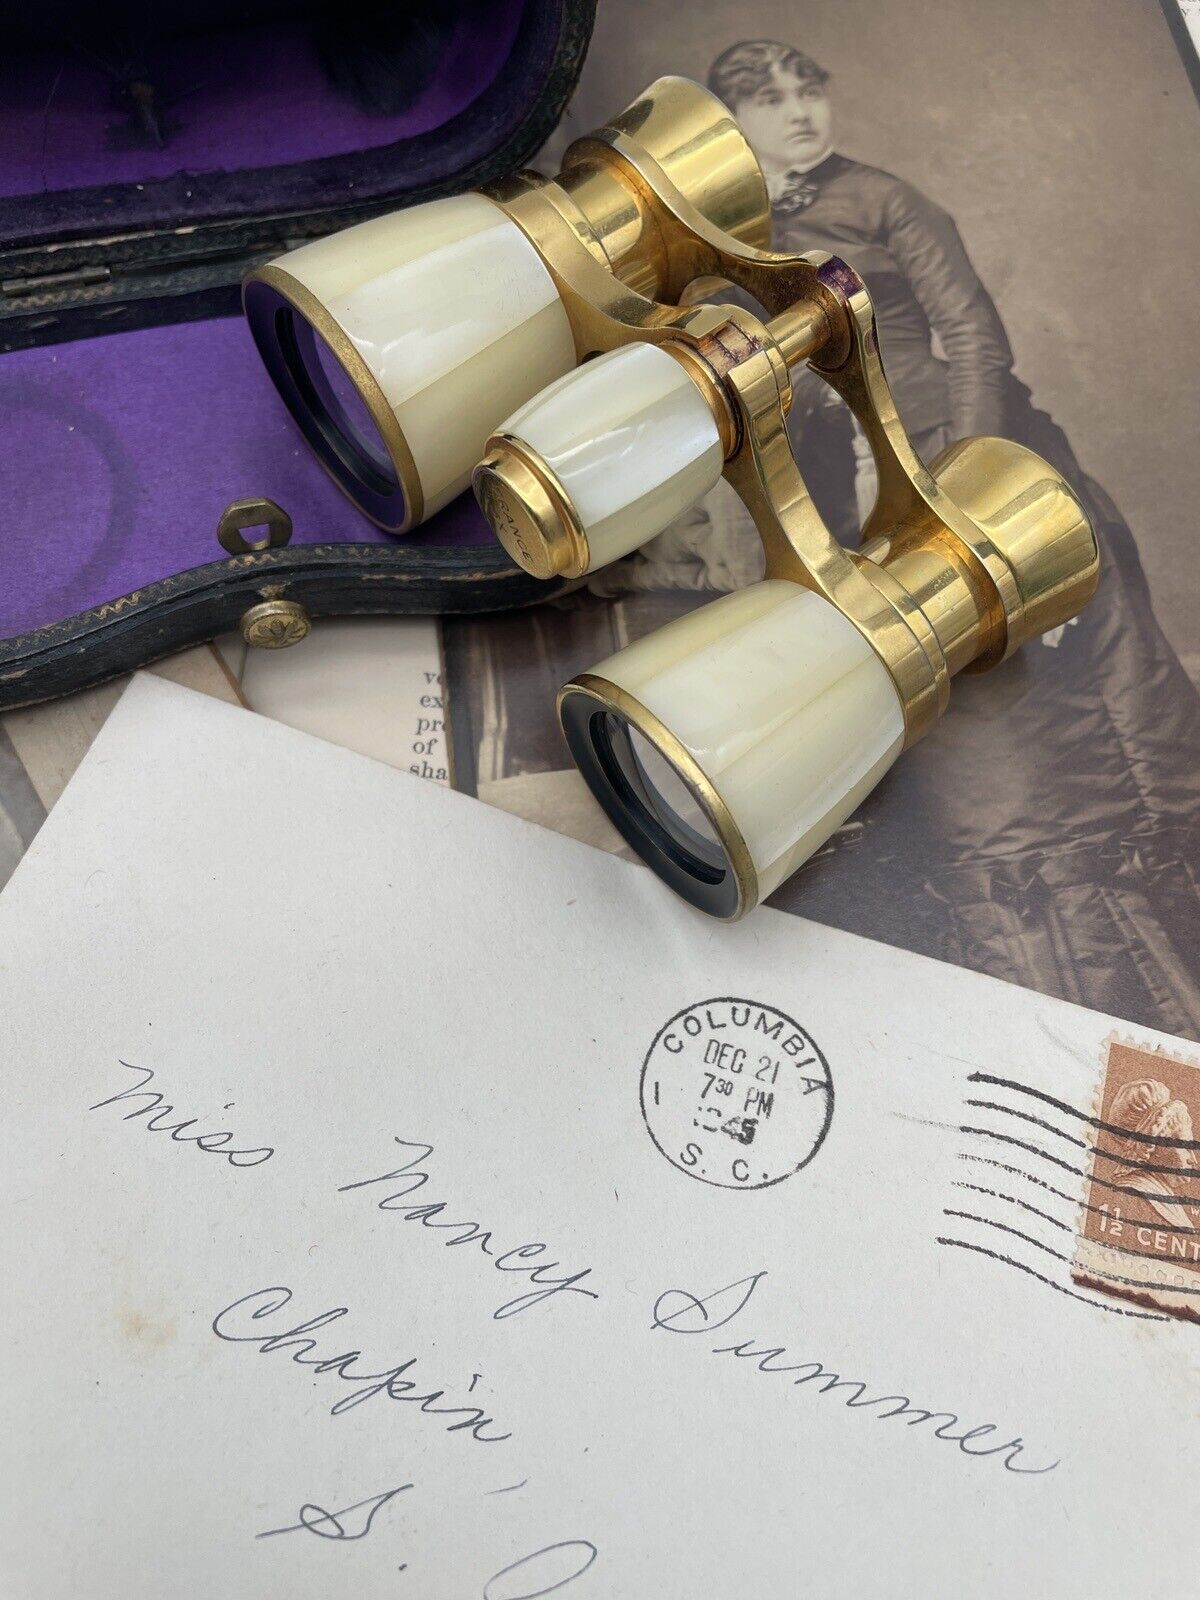 FRANCE
of
COLUMBIA
DEC 21
7 30 PM
1945
S. C.
1
1½ CENT
Miss Nancy Summer
Chapin,
S.